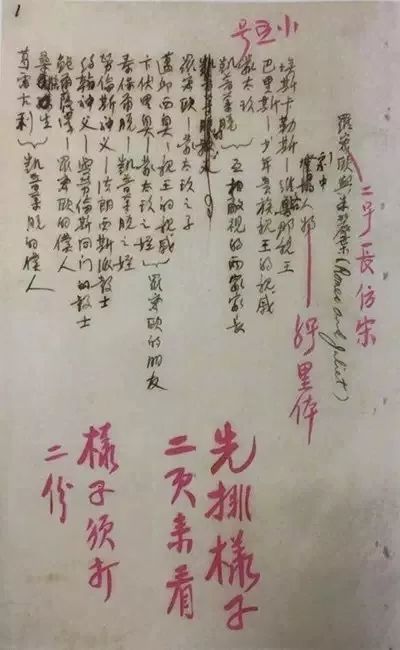 1
二号長仿宋
羅密歐與朱麗葉(Romeo and Juliet)
劇中人物
小五号
埃斯卡勒斯——維洛那親王
巴里斯——少年貴族,親王的親戚
蒙太玖
凱普萊脫
互相敵視的两家家長
羅密歐——蒙太玖之子
茂邱西奥——親王的親戚
卞伏里奥——蒙太玖之姪
羅密歐的朋友
泰保爾脫——凱普萊脫之姪
勞倫斯神父——法朗西斯派教士
約翰神父——與勞倫斯同門的教士
鮑爾薩澤——羅密歐的僕人
生
葛雷利
凱普萊脫的僕人
先排樣子
二页来看
樣子須打
二份